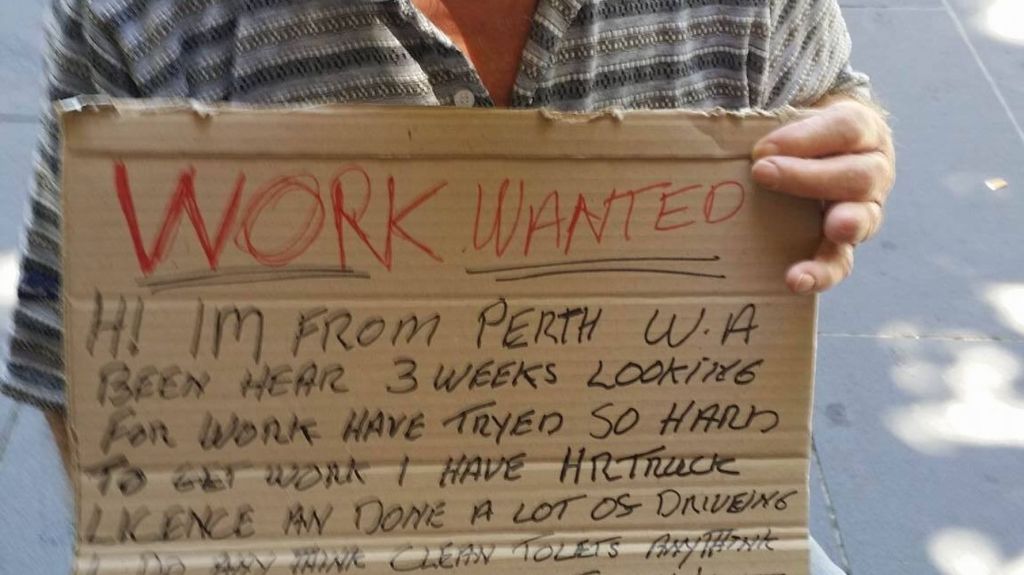 WORK WANTED
HI IM FROM PERTH W.A
BEEN HEAR 3 WEEKS LOOKING
FOR WORK HAVE TRYED SO HARD
TO GET WORK I HAVE HR TRUCK
LICENCE AN DONE A LOT OS DRIVEING
I DO ANY THINK CLEAN TOLETS ANYTHINK